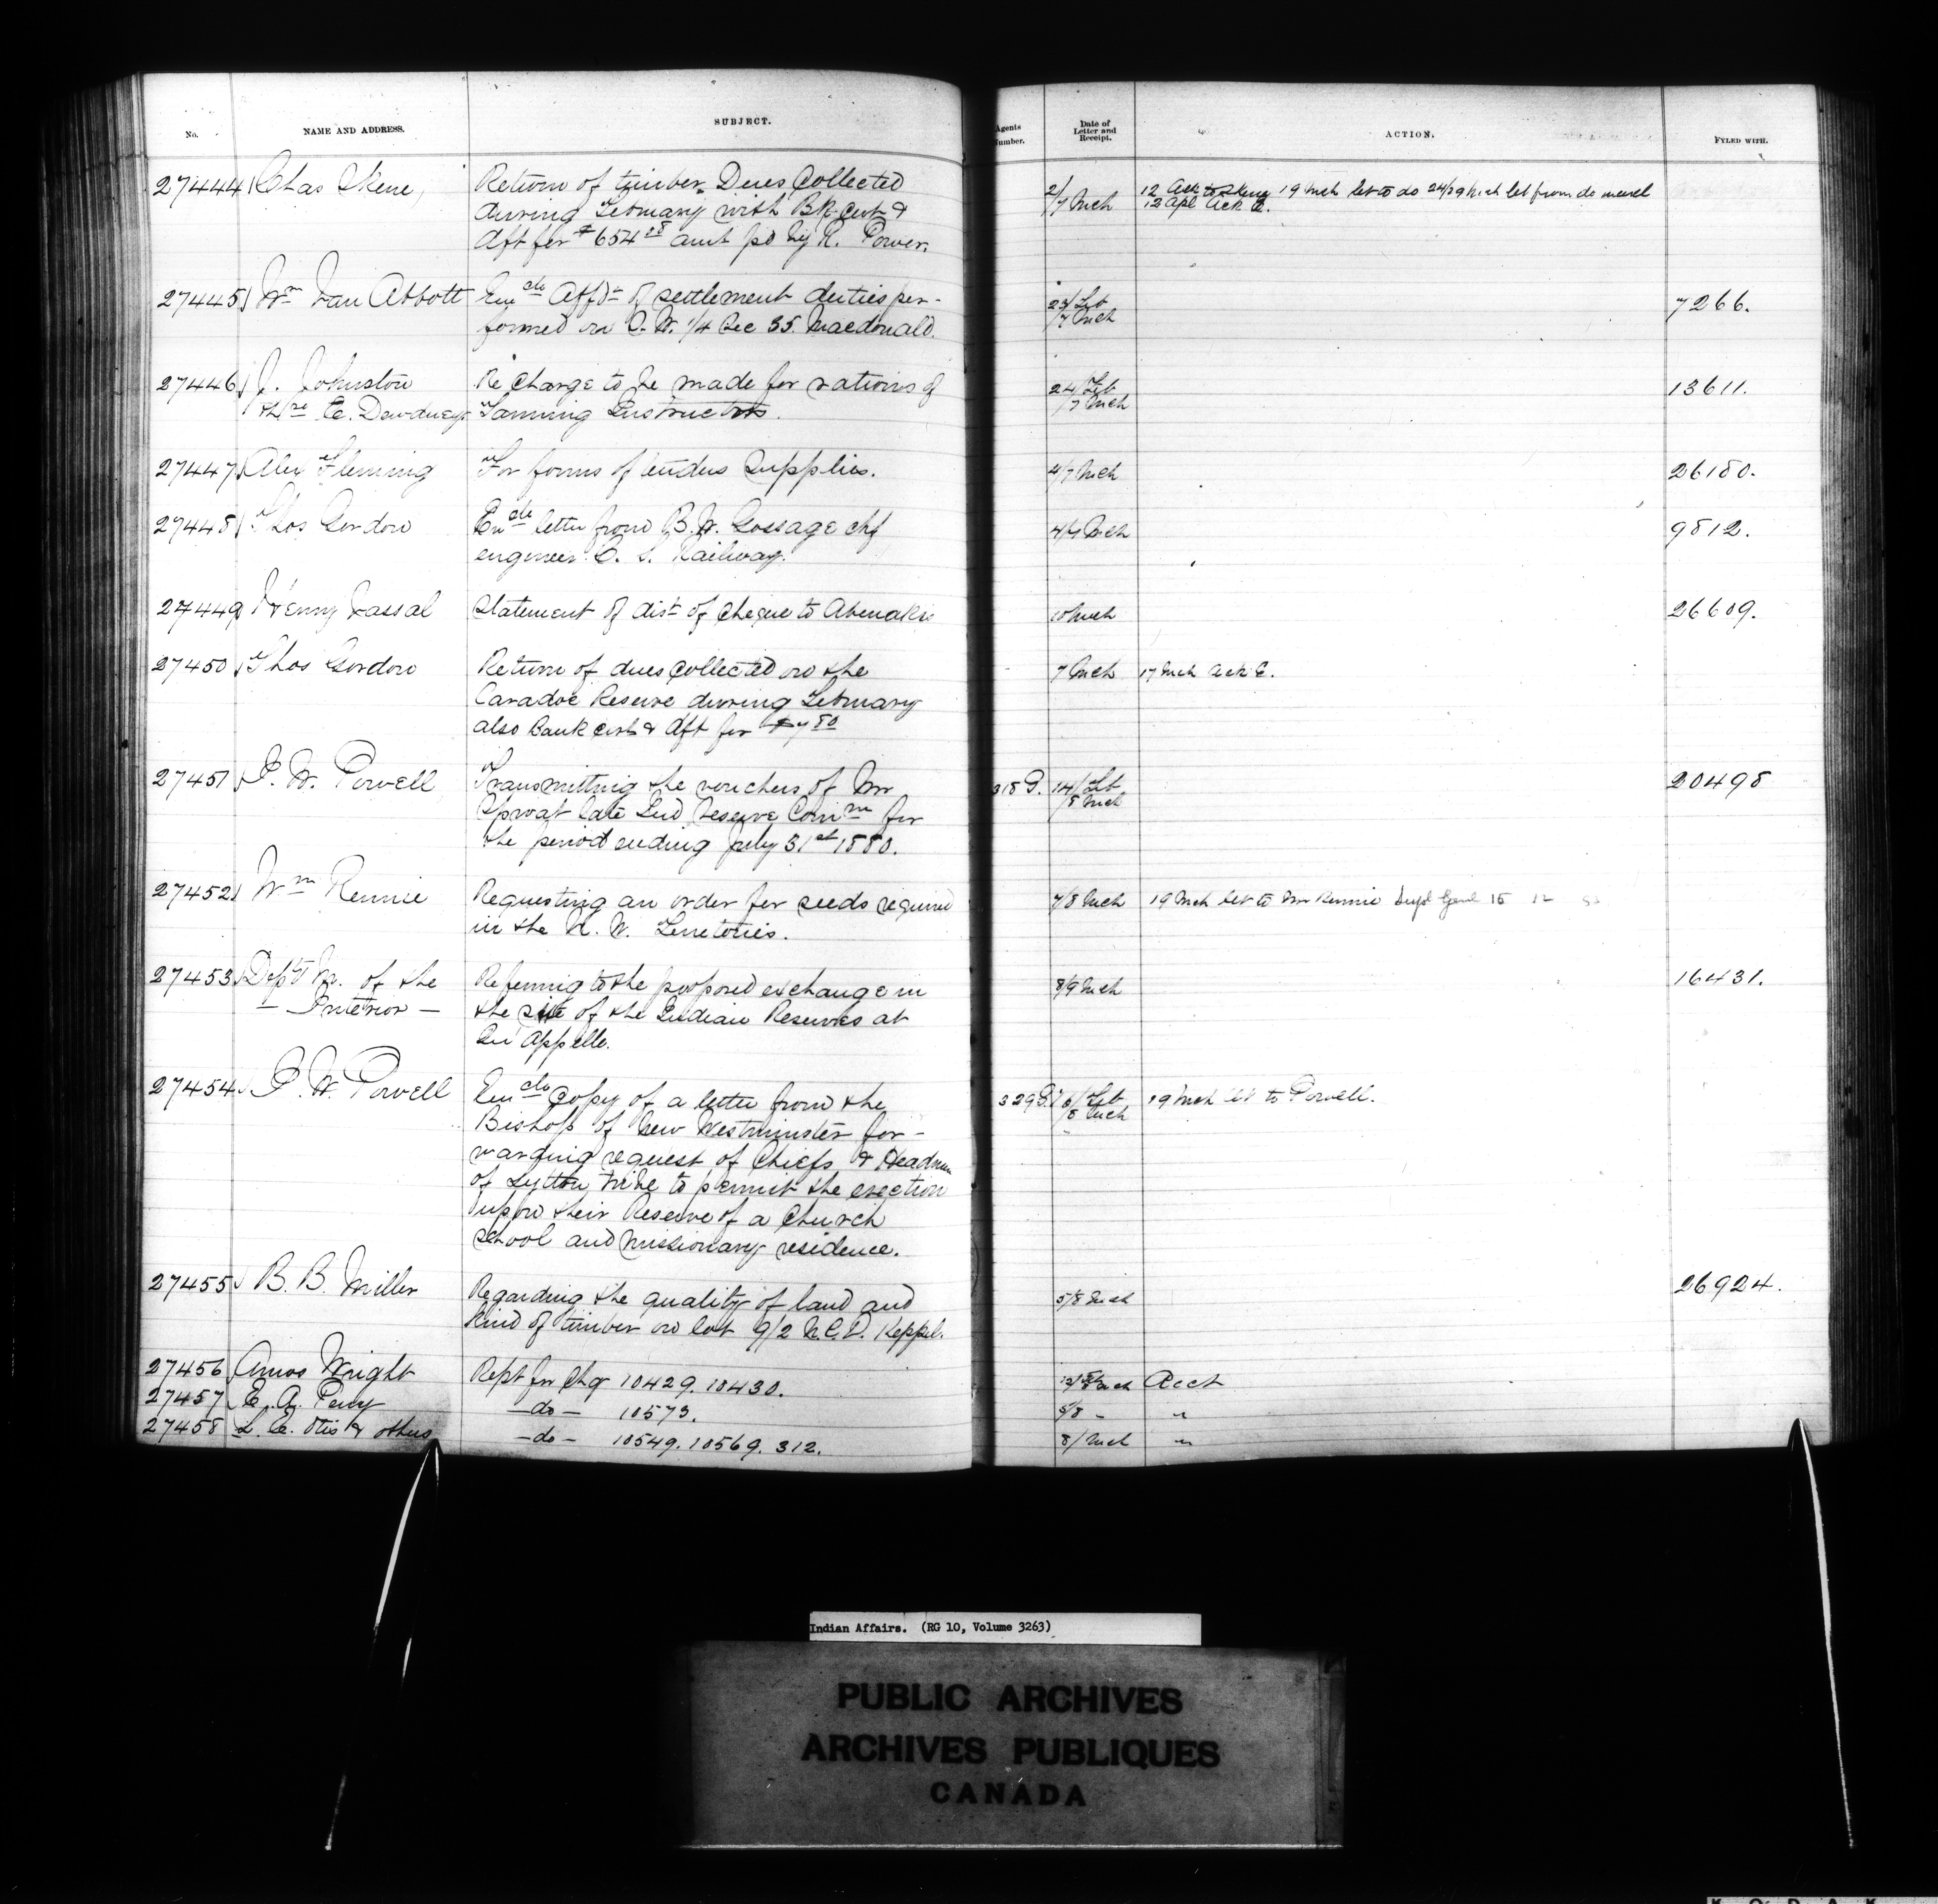 No. NAME AND ADDRESS. SUBJECT. Agents Number. Date of Letter and Receipt. ACTION. FYLED WITH.
27444 Chas Skene, Return of timber Dues Collected 2/7 Mch 12 Ack to Skene 19 Mch let to do 24/29 Mch let from do
during February with Bk Cert & 12 Apl Ack C.
dft for $654 28 amt pd by R. Power.
27445 Wm Van Abbott Encdo Affdt of settlement duties per- 23/Feb 7266.
formed on S.W. 1/4 Sec 35 Macdonald. /7 Mch
27446 J. Johnston Re Charge to be made for rations of 24/Feb 13611.
thro E. Dewdney Farming Instructors. /7 Mch
27447 Alex Fleming For forms of tender Supplies. 4/7 Mch 26180.
27448 Thos Gordon Encdo letter from B.W. Gossage chf 4/7 Mch 9812.
engineer C. S. Railway.
27449 Henry Vassal Statement of dist of cheque to Abenakis 10 Mch 26609.
27450 Thos Gordon Return of dues Collected on the 7 Mch 17 Mch Ack C.
Caradoc Reserve during February
also Bank Cert & dft for $7 80
27451 I. W. Powell Transmitting the vouchers of Mr 318 G. 14/Feb 20498
Sproat late Ind Reserve Comm for /8 Mch
the period ending July 31st 1880.
27452 Wm Rennie Requesting an order for seeds required 7/8 Mch 19 Mch let to Mr Rennie Supt Genl 15 12
in the N. W. Territories.
27453 Dept M. of the Referring to the proposed exchange in 8/9 Mch 16431.
— Interior — the site of the Indian Reserves at
Qu'Appelle.
27454 I. W. Powell Encdo Copy of a letter from the 329 G. 16/Feb 19 Mch let to Powell.
Bishop of New Westminster for- /8 Mch
warding request of Chiefs & Headmen
of Lytton tribe to permit the erection
upon their Reserve of a Church
School and missionary residence.
27455 B. B. Miller Regarding the quality of land and 5/8 Mch 26924.
Kind of timber on lot 9/2 N.C.D. Keppel.
27456 Amos Wright Rept for Chq 10429. 10430. Acct
27457 E. A. Perry —do— 10573. 5/8 " "
27458 L. E. Otis & others —do— 10549. 10569. 312. 8/Mch "
Indian Affairs. (RG 10, Volume 3263)
PUBLIC ARCHIVES
ARCHIVES PUBLIQUES
CANADA